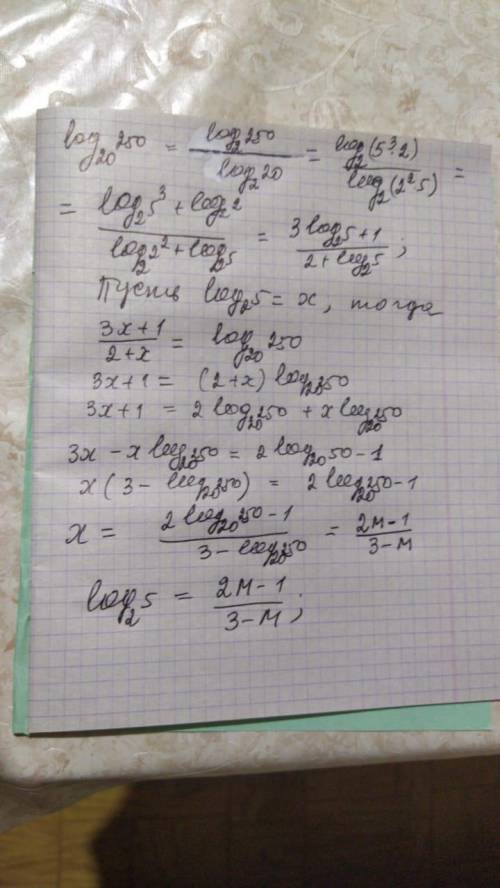 log₂₀250 = log₂250 / log₂20 = log₂(5³·2) / log₂(2²·5) =
= (log₂5³ + log₂2) / (log₂2² + log₂5) = (3log₂5+1) / (2+log₂5) ;
Пусть log₂5 = x, тогда
(3x+1) / (2+x) = log₂₀250
3x+1 = (2+x) log₂₀250
3x+1 = 2log₂₀250 + x log₂₀250
3x - x log₂₀250 = 2log₂₀50 - 1
x(3 - log₂₀250) = 2log₂₀250 - 1
x = (2log₂₀250 - 1) / (3 - log₂₀250) = (2М-1) / (3-М)
log₂5 = (2М-1) / (3-М) ;